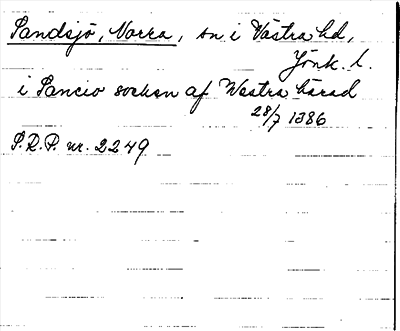 Sandsjö, Norra, sn i Västra hd,
Jönk. l.
i Sancio socken af Westra härad
28/7 1386
S.R.P. nr. 2249